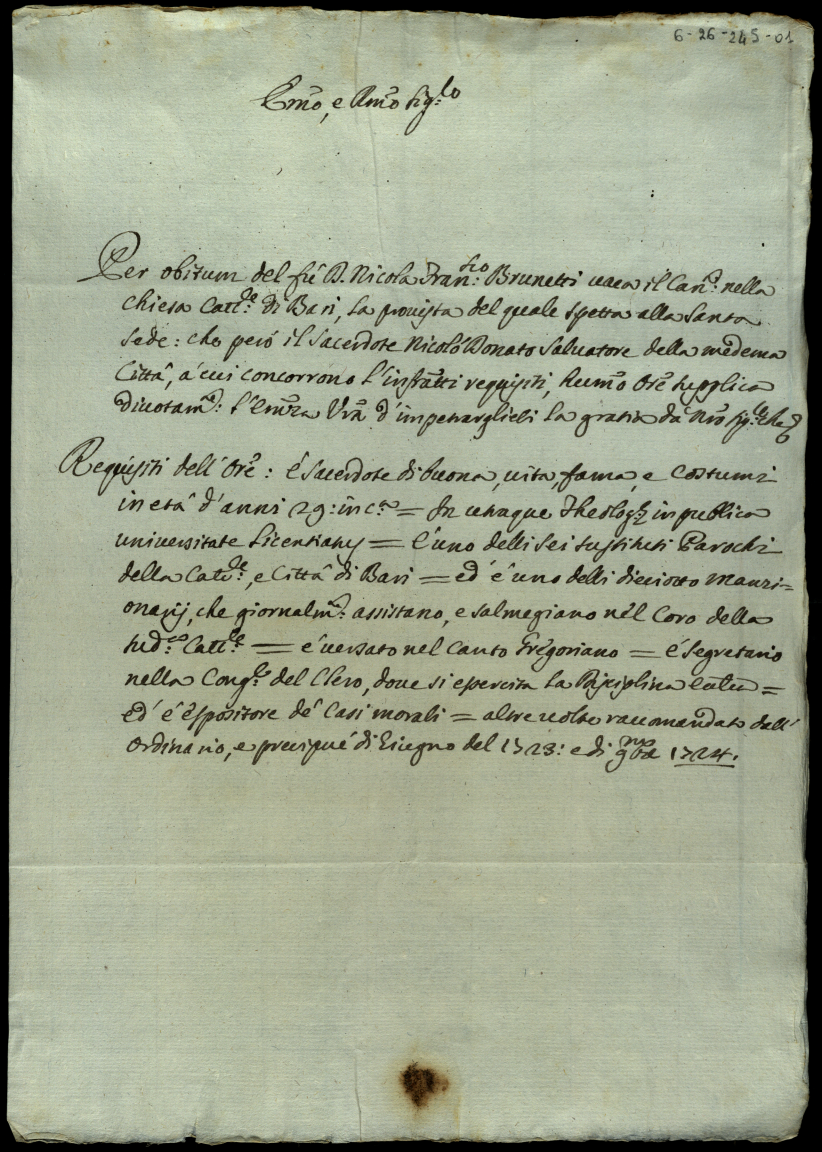 6-26-245-01
Em̃o, e Rm̃o Sig.re
Per obitum del fù D. Nicola Fran.sco Brunetti vaca il Can.to nella
Chiesa Catt.le di Bari, la provista del quale spetta alla Santa
Sede: che però il Sacerdote Nicolò Donato Salvatore della medema
Città, à cui concorrono l'infrãtti requisiti, hum̃o Orẽ supplica
divotam.e: l'Em̃za Vr̃a d'impetrarglieli la gratia da Nr̃o Sig.re
Requisiti dell'Orẽ: è Sacerdote di buona, vita, fama, e Costumi
in età d'anni 29: in c.a = In utraque Theolog: in publica
universitate Licentiatus = è uno delli sei sustituti Parochi
della Catt.le, e Città di Bari = ed' è uno delli dieciotto manzi=
onarij, che giornalm.e assistano, e salmegiano nel Coro della
sud.a Catt.le = è versato nel Canto Gregoriano = è Segretario
nella Cong.e del Clero, dove si essercita la Disciplina =
ed' è Espositore de' Casi morali = altre volte raccomandato dall'
Ordinario, e precipuè di Giugno del 1723: e di 9mbre 1724.